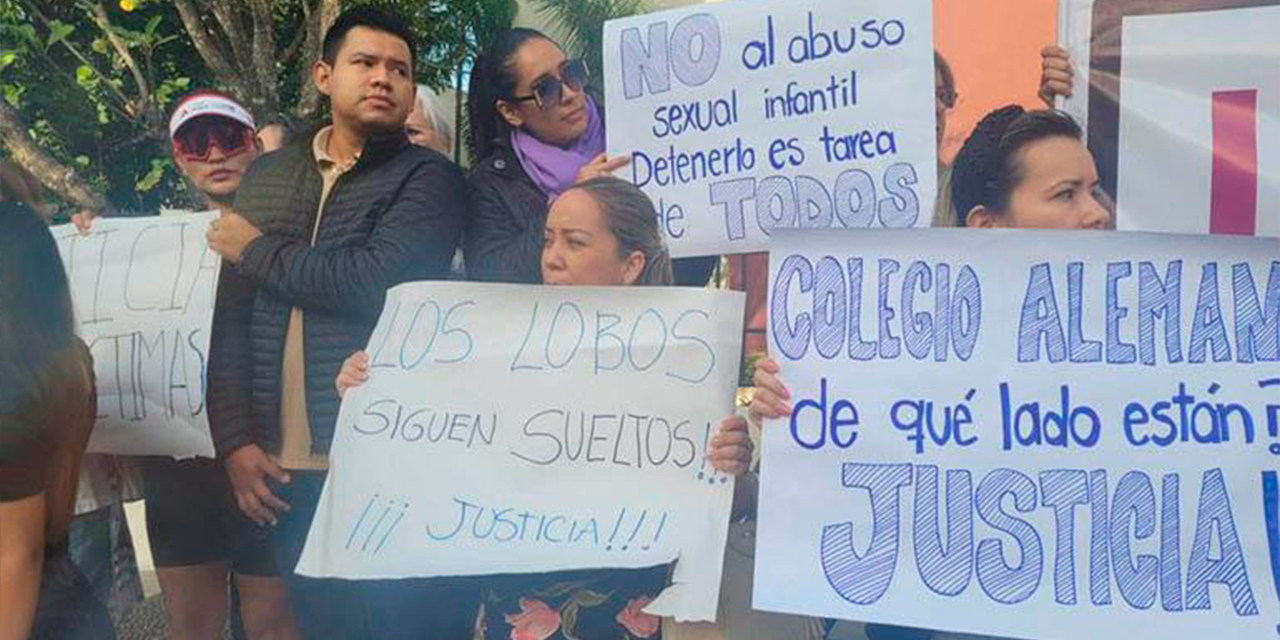 NO al abuso
sexual infantil
Detenerlo es tarea
de TODOS
TICIA
CTIMAS
LOS LOBOS
SIGUEN SUELTOS!!
¡¡¡ JUSTICIA!!!
COLEGIO ALEMAN
de qué lado están?
JUSTICIA!